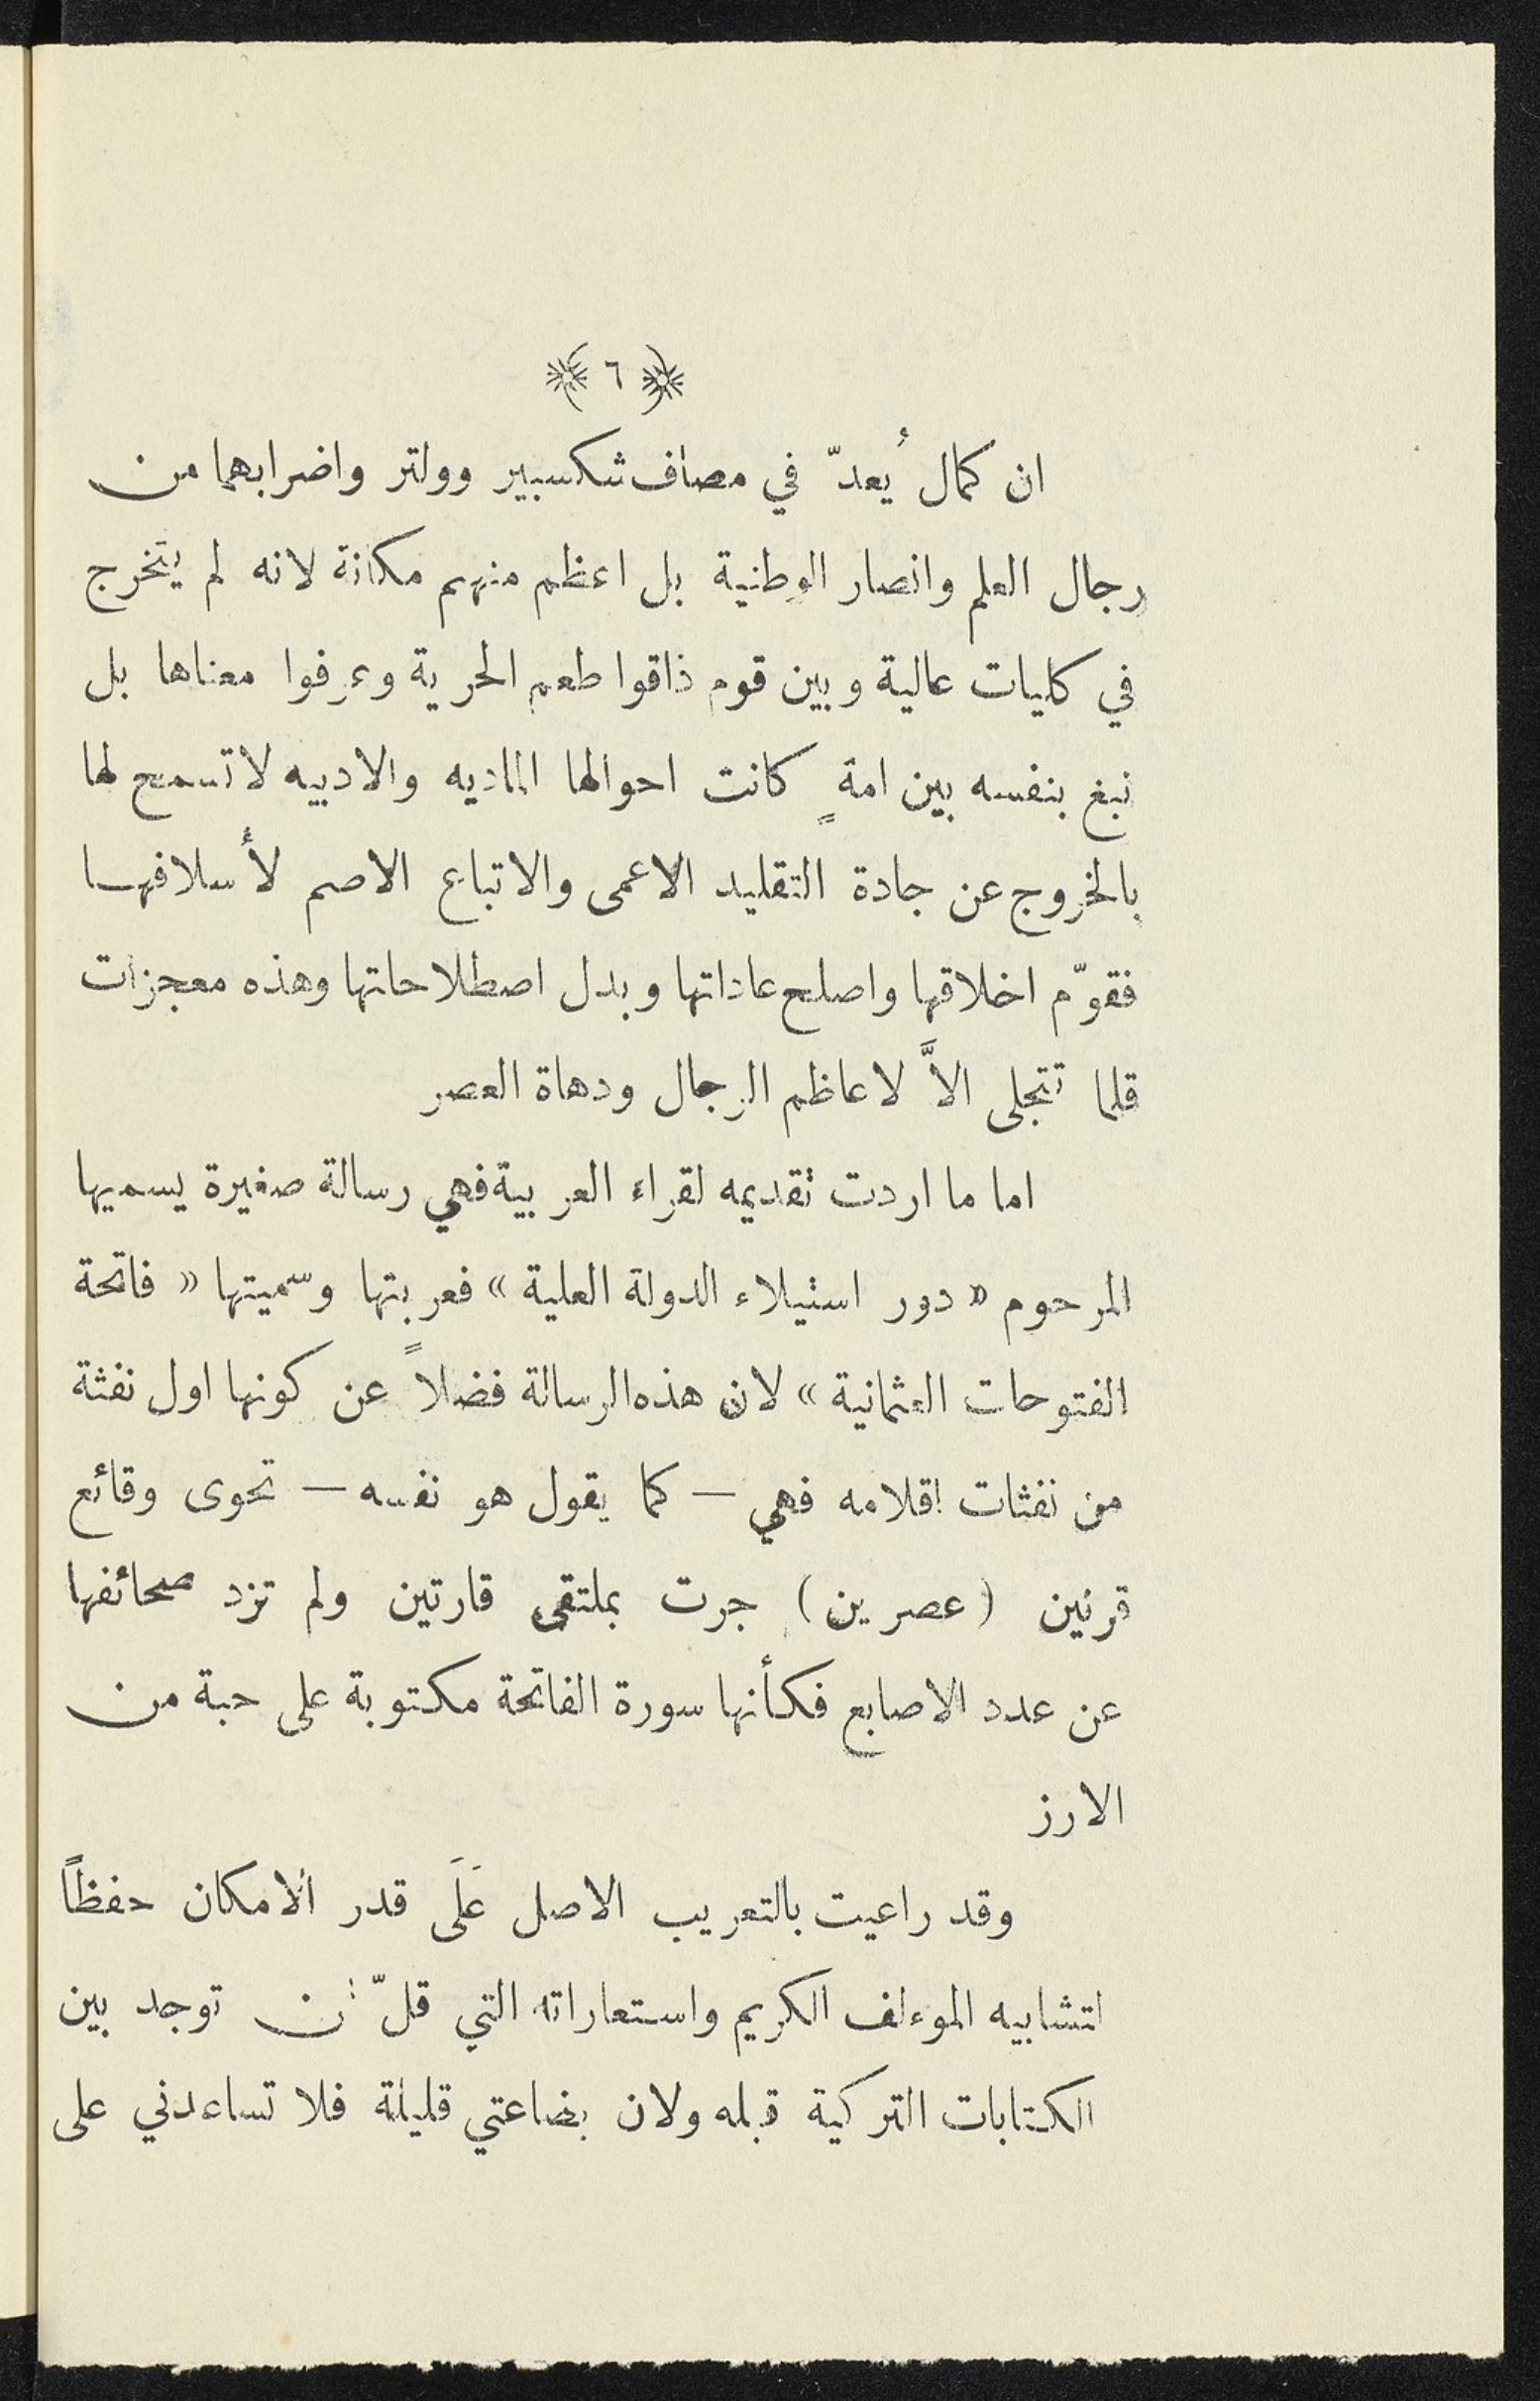 ٦
ان كمال يُعدّ في مصاف شكسبير وولتر واضرابهما من
رجال العلم وانصار الوطنية بل اعظم منهم مكانة لانه لم يتخرج
في كليات عالية وبين قوم ذاقوا طعم الحرية وعرفوا معناها بل
نبغ بنفسه بين امةٍ كانت احوالها الماديه والادبيه لا تسمح لها
بالخروج عن جادة التقليد الاعمى والاتباع الاصم لأسلافها
فقوّم اخلاقها واصلح عاداتها وبدل اصطلاحاتها وهذه معجزات
قلما تتجلى الاَّ لاعاظم الرجال ودهاة العصر
اما ما اردت تقديمه لقراء العربية فهي رسالة صغيرة يسميها
المرحوم « دور استيلاء الدولة العلية » فعربتها وسميتها « فاتحة
الفتوحات العثمانية » لان هذه الرسالة فضلاً عن كونها اول نفثة
من نفثات اقلامه فهي — كما يقول هو نفسه — تحوى وقائع
قرنين ( عصرين ) جرت بملتقى قارتين ولم تزد صحائفها
عن عدد الاصابع فكأنها سورة الفاتحة مكتوبة على حبة من
الارز
وقد راعيت بالتعريب الاصل عَلَى قدر الامكان حفظاً
لتشابيه الموءلف الكريم واستعاراته التي قلّ ان توجد بين
الكتابات التركية قبله ولان بضاعتي قليلة فلا تساعدني على